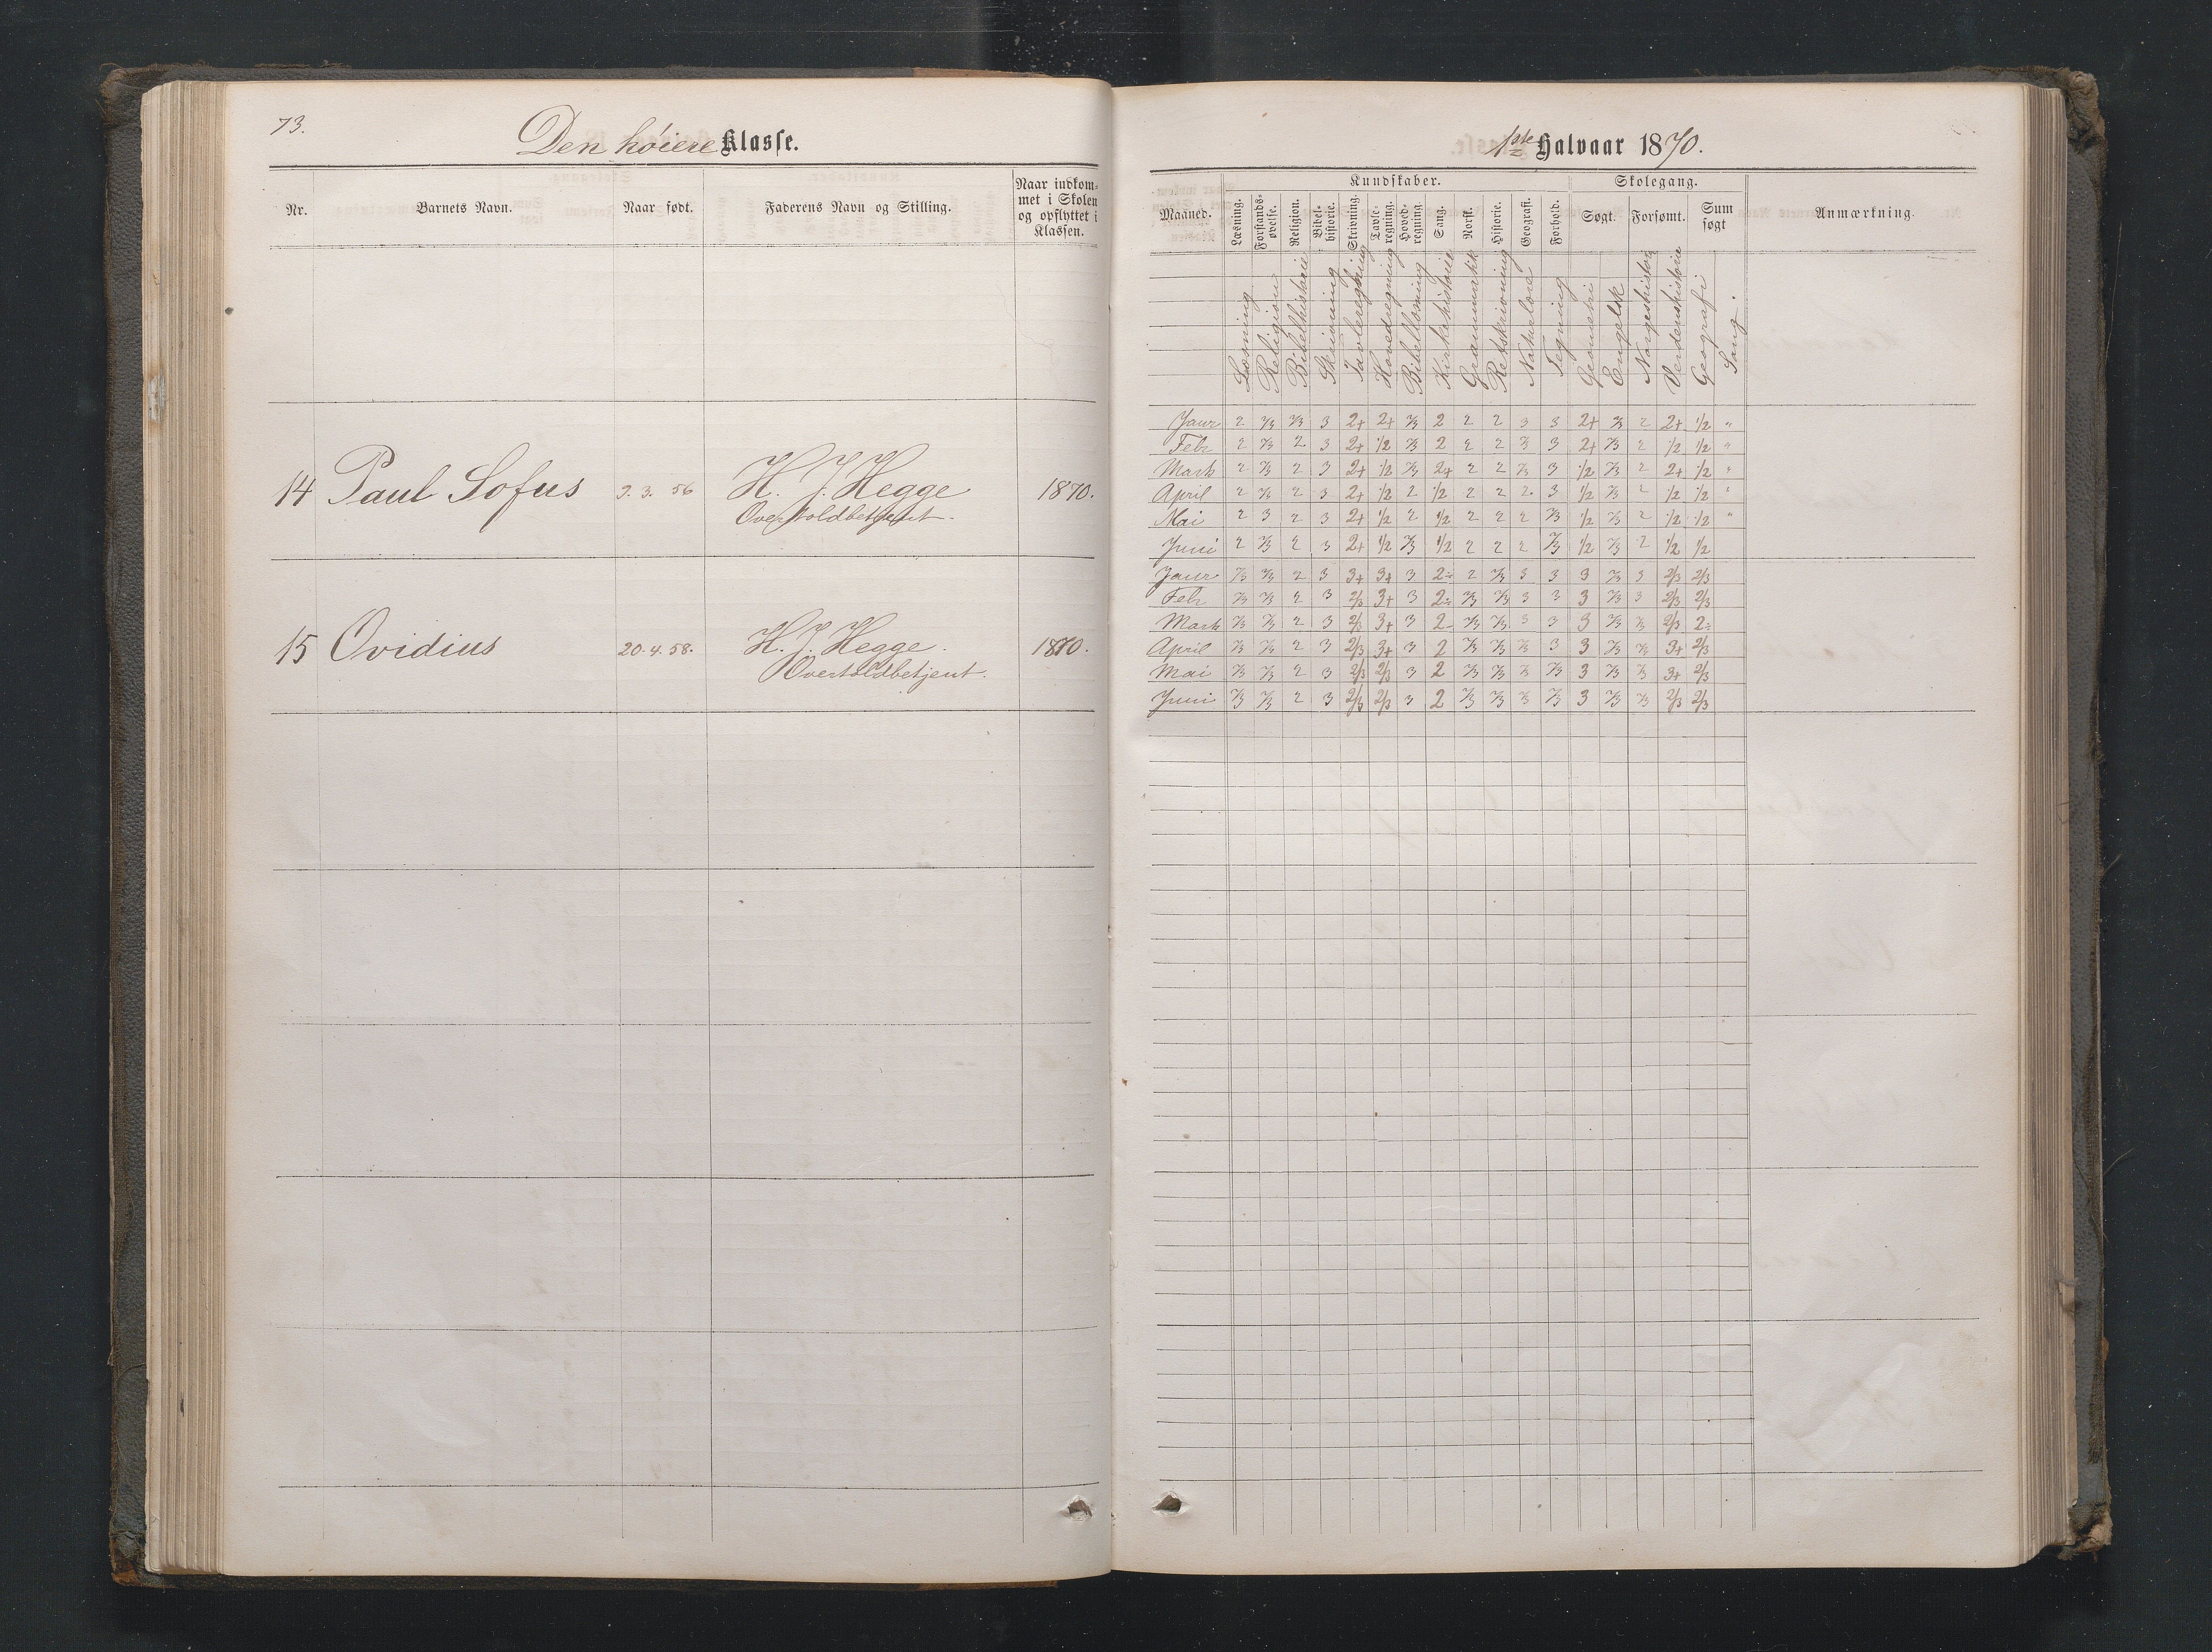 73.
Den høiere Klasse.
Nr.
Barnets Navn.
Naar født.
Faderens Navn og Stilling.
Naar indkom-
met i Skolen
og opflyttet i
Klassen.
14 Paul Sofus 9. 3. 56 H. J. Hegge 1870.
Overtoldbetjent.
15 Ovidius 20. 4. 58. H. J. Hegge. 1870.
Overtoldbetjent.
1ste Halvaar 1870.
Kundskaber. Skolegang.
Maaned.
Læsning.
Forstands-
øvelse.
Religion.
Bibel-
historie.
Skrivning.
Tavle-
regning.
Hoved-
regning.
Sang.
Norsk.
Historie.
Geografi.
Forhold.
Søgt.
Forsømt.
Sum
søgt
Anmærkning.
Læsning
Religion
Bibelhistorie
Skrivning
Tavleregning
Hovedregning
Bibellæsning
Kirkehistorie
Grammatik
Retskrivning
Naturlære
Tegning
Geometri
Engelsk
Norgeshistorie
Verdenshistorie
Geografi
Sang.
Janr 2 2/3 2/3 3 2+ 2+ 2/3 2 2 2 3 3 2+ 2/3 2 2+ 1/2 "
Febr 2 2/3 2 3 2+ 1/2 2/3 2 2 2 2/3 3 2+ 2/3 2 1/2 1/2 "
Marts 2 2/3 2 3 2+ 1/2 2/3 2+ 2 2 2/3 3 1/2 2/3 2 2+ 1/2 "
April 2 2/3 2 3 2+ 1/2 2 1/2 2 2 2 3 1/2 2/3 2 1/2 1/2 "
Mai 2 3 2 3 2+ 1/2 2 1/2 2 2 2 2/3 1/2 2/3 2 1/2 1/2 "
Juni 2 2/3 2 3 2+ 1/2 2/3 1/2 2 2 2 2/3 1/2 2/3 2 1/2 1/2
Janr 2/3 2/3 2 3 3+ 3+ 3 2÷ 2 2/3 3 3 3 2/3 3 2/3 2/3
Febr 2/3 2/3 2 3 2/3 3+ 3 2÷ 2/3 2/3 3 3 3 2/3 3 2/3 2/3
Marts 2/3 2/3 2 3 2/3 3+ 3 2÷ 2/3 2/3 3 3 3 2/3 2/3 2/3 2÷
April 2/3 2/3 2 3 2/3 3+ 3 2 2/3 2/3 2/3 3 3 2/3 2/3 3+ 2/3
Mai 2/3 2/3 2 3 2/3 2/3 3 2 2/3 2/3 2/3 2/3 3 2/3 2/3 3+ 2/3
Juni 2/3 2/3 2 3 2/3 2/3 3 2 2/3 2/3 2/3 2/3 3 2/3 2/3 2/3 2/3